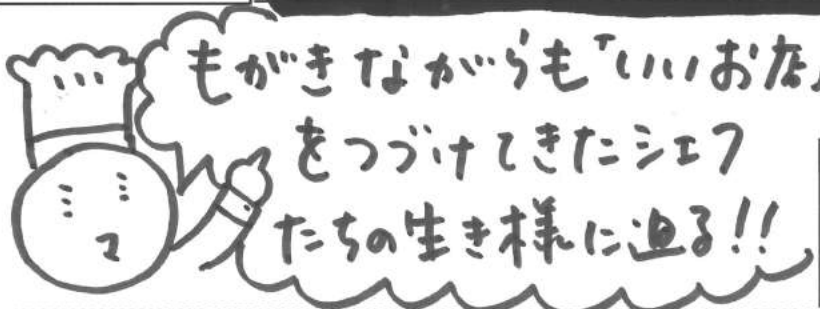 もがきながらも「いいお店」
をつづけてきたシェフ
たちの生き様に迫る!!